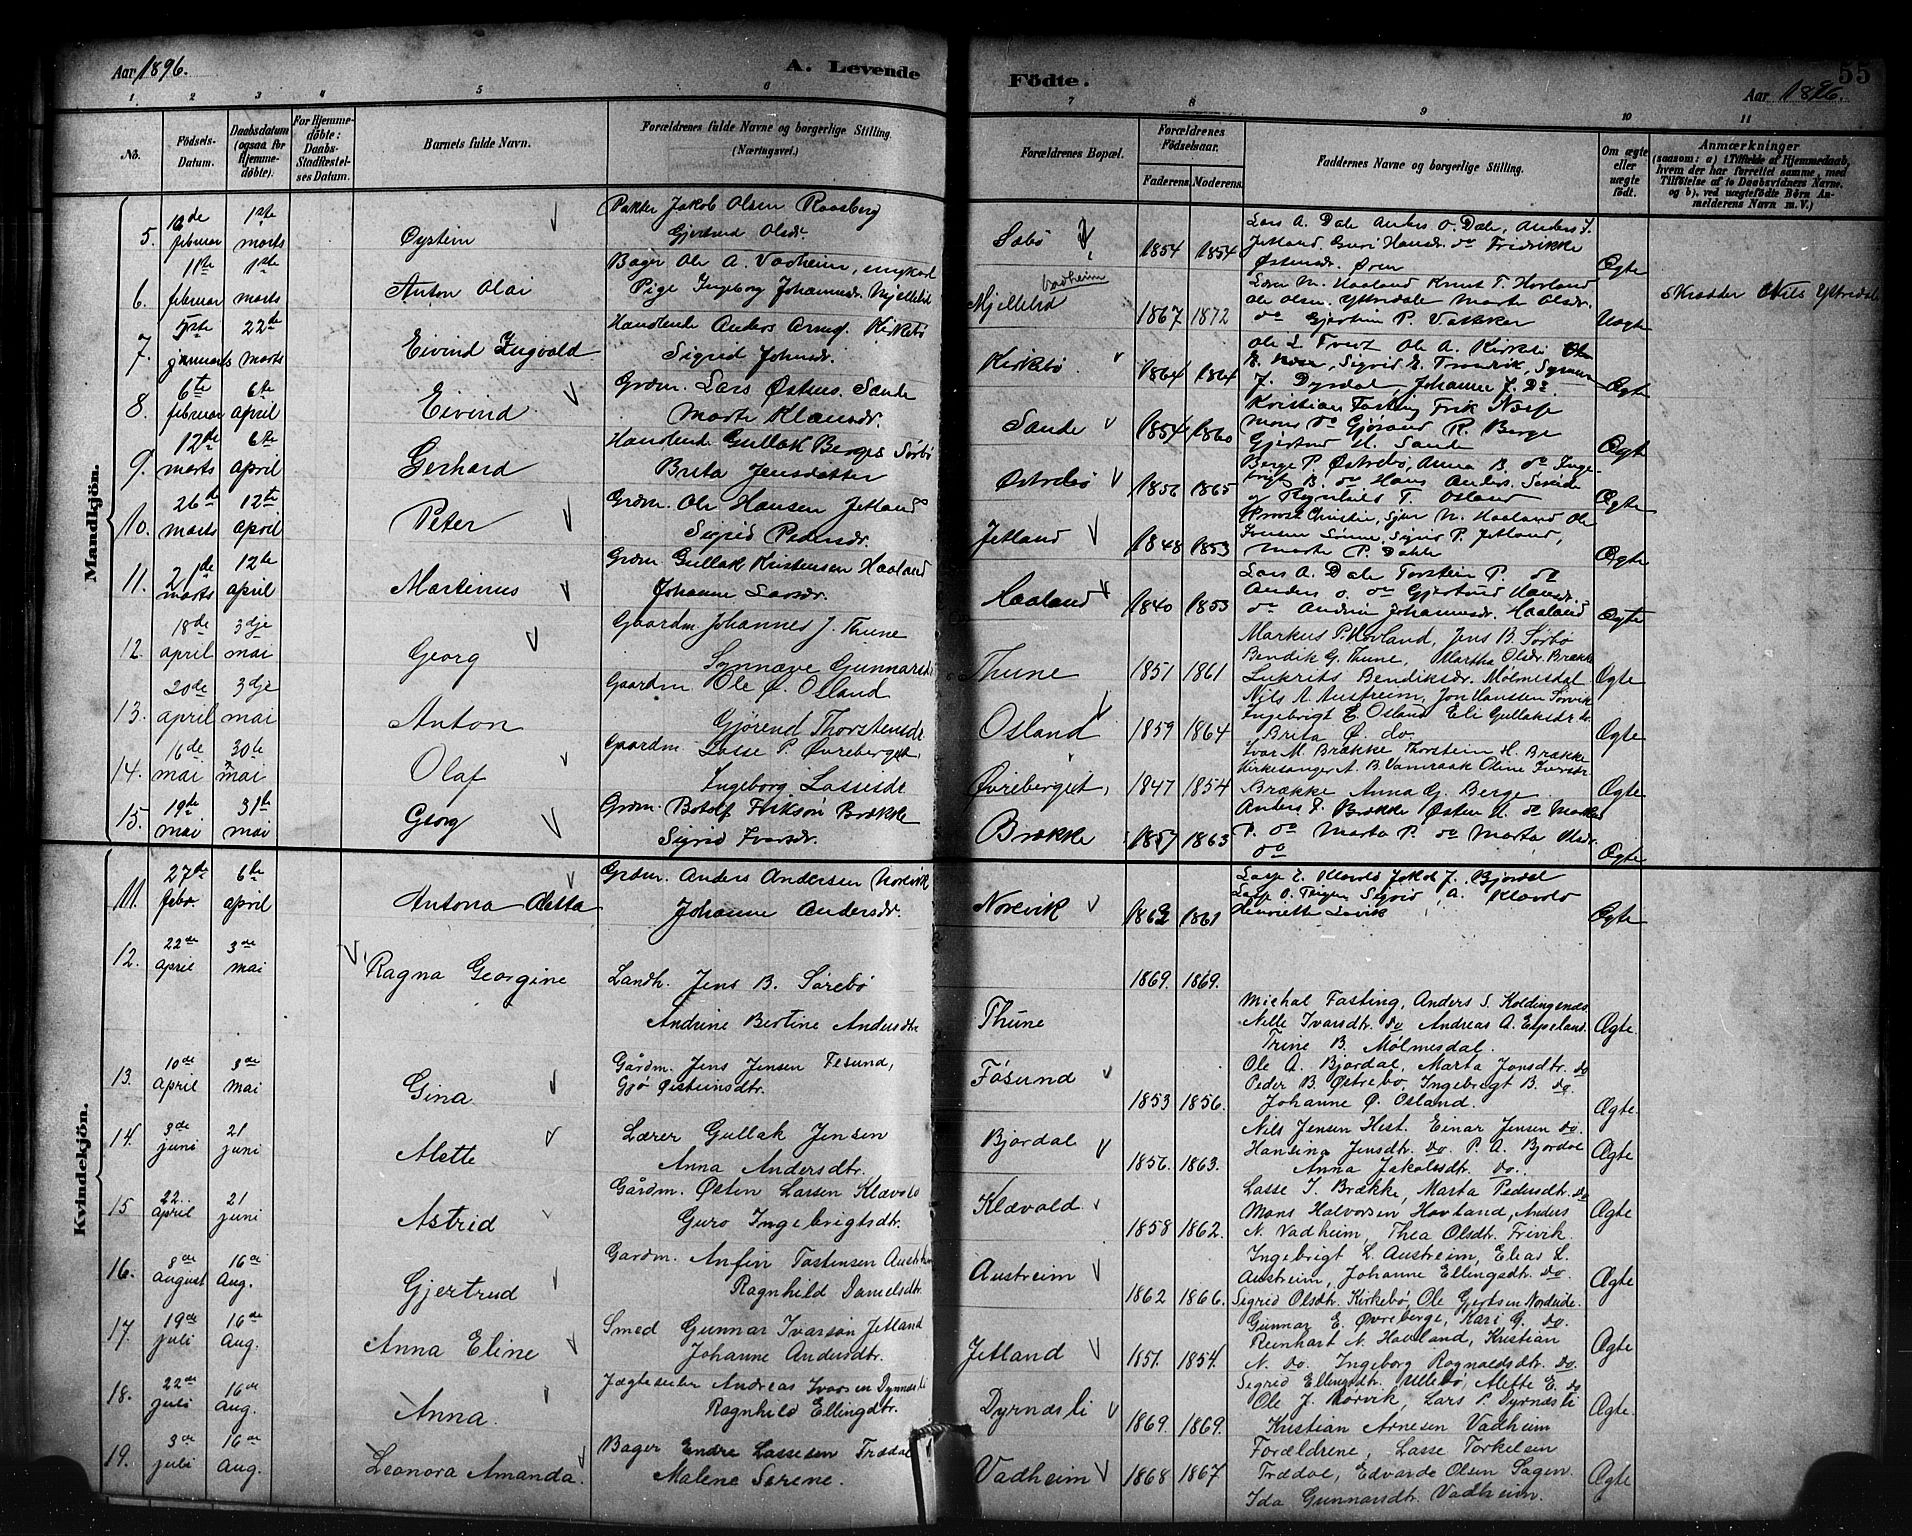 Aar 1896.
A. Levende
Födte.
55
Aar 1896.
1 2 3 4 5 6 7 8 9 10 11
No.
Födsels-Datum.
Daabsdatum (ogsaa for Hjemme-døbte).
For Hjemme-døbte: Daabs-Stadfæstel-ses Datum.
Barnets fulde Navn.
Forældrenes fulde Navne og borgerlige Stilling. (Næringsvei.)
Forældrenes Bopæl.
Forældrenes Födselsaar.
Faderens. Moderens.
Faddernes Navne og borgerlige Stilling.
Om ægte eller uægte født.
Anmærkninger
(saasom: a) i Tilfælde af Hjemmedaab, hvem der har forrettet samme, med Tilføielse af to Daabsvidners Navne, og b). ved uægtefødte Börn An-melderens Navn m. V.)
Mandkjön.
5. februar 1ste marts Øystein Jakob Olsen Raasberg Gjertrud Olsdr. Sæbø 1854 1854 Lars A. Dale Anders O. Dale, Anders J. Jetland, Guri Hansdr. do Fridrikke Østensdr. Øren Ægte
6. 11te februar 1ste marts Anton Olai Bager Ole A. Vadheim, ungkarl Pige Ingeborg Johannesdr. Mjellelid Vadheim Mjellelid 1867 1872 Haaland Knut T. Hovland Ole Olsen Ytredale Marte Olsdr. do Gjertine P. Uægte Skrædder Nils Ytredale
7. 5te januar 22te marts Eivind Ingvald Handlende Anders Kirkebø Sigrid Johnsdr. Kirkebø 1864 1864 Ole A. Kirkebø Sigrid E. J. Dyrdal, Johanne J. Do Ægte
8. 6te februar 6te april Eivind Grdm. Lars Østens. Sande Marte Klausdr. Sande 1854 1860 Kristian Fasting Frik Nese Mons do Gjørand R. Berge Gjertrud H. Sande Ægte
9. 12te marts 6te april Gerhard Handlend Gullak Berges Sørbø Brita Jensdatter Østrebø 1856 1865 Berge P. Østrebø, Anna B. do Ingebrigt B. do Hans Anders. og Ragnhild T. Osland Ægte
10. 26de marts 12te april Peter Grdm. Ole Hansen Jetland Sigrid Pedersdr. Jetland 1848 1853 Christie, Sjur N. Haaland Ole Sigrid P. Jetland, Marte P. Dahle Ægte
11. 21de marts 12te april Martinus Grdm. Gullak Kristensen Haaland Johanne Larsdr. Haaland 1840 1853 Lars A. Dale Torstein P. do Anders O. do Gjertrud Hansdr. do Andrine Johannesdr. Haaland Ægte
12. 18de april 3dje mai Georg Gaardm. Johannes J. Thune Synnæve Gunnarsdr Thune 1851 1861 Markus P. Hovland, Jens B. Sørbø Bendik G. Thune, Martha Olsdr. Brække Lukrits Bendiksdr. Mølmesdal Ægte
13. 20de april 3dje mai Anton Gaardm Ole Ø. Osland Gjørend Thorstensdr Osland 1859 1864 Nils A. Austreim, Jon Hanssen Sørvik Ingebrigt E. Osland Eli Gullaksdr do Brita Ø. do. Ægte
14. 16de mai 30te mai Olaf Gaardm. Lasse P. Øvreberget Ingeborg Lassesdr Øvreberget, 1847 1854 Ivar M. Brække Thorstein H. Brække Kirkesanger A. B. Vamraak Oline Iversdr Brække Anna G. Berge Ægte
15. 19te mai 31te mai Georg Grdm. Botolf Eriksøn Brække Sigrid Ivarsdr. Brække 1857 1863 Anders T. Brække Østen A. do Markus P. do Marta P. do Marta Olsdr. do Ægte
Kvindekjön.
11. 27de febr. 6te april Antona Aletta Grdm. Anders Andersen Norevik Johanne Andersdr. Norevik 1862 1861 Lasse E. Klævold Jakob J. Bjordal Lasse O. Sigrid A. Klævold Henriette Ægte
12. 22de april 3de mai Ragna Georgine Landh. Jens B. Sørebø Andrine Bertine Andersdtr Thune 1869. 1869. Michal Fasting, Anders S. Koldingsnæs Nille Ivarsdtr. do Andreas A. Espeland Trine B. Mølmesdal. Ægte
13. 10de april 3de mai Gina Gårdm. Jens Jensen Fesund, Gjø Øisteinsdtr. Føsund 1853 1856. Ole A. Bjordal, Marta Jonsdtr. do Peder B. Østrebø, Ingebrigt B. do. Johanne Ø. Osland. Ægte.
14. 3de juni 21 juni Alette Lærer Gullak Jensen Anna Andersdtr. Bjordal 1856. 1863. Nils Jensen Hest. Einar Jensen do. Hansina Jensdtr. do. P. A. Bjordal Anna Jakobsdtr. do. Ægte
15 22. april 21 juni Astrid Gårdm. Østen Larsen Klævold Guro Ingebrigtsdtr. Klævold 1858 1862. Lasse I. Brække, Marta Pedersdtr. do Mons Halvorsen Hovland, Anders N. Vadheim, Thea Olsdtr. Frivik. Ægte
16. 8de august 16de Aug. Gjertrud Gardm. Anfin Tostensen Austreim Ragnhild Danielsdtr. Austreim 1862 1866. Ingebrigt L. Austreim, Elias L. Austreim, Johanne Ellingsdtr. do. Sigrid Olsdtr. Kirkebø, Ole Gjertsen Nordeide. Ægte
17. 19de juli 16de Aug. Anna Eline Smed Gunnar Ivarsøn Jetland Johanne Andersdtr. Jetland 1851. 1854. Gunnar E. Øvreberge, Kari G. do. Reinhart N. Hovland, Kristian N. do. Ingeborg Ragnaldsdtr. do Ægte
18. 22de juli 16de Aug. Anna. Jægteseiler Andreas Ivarsen Dyrnæsli Ragnhild Ellingsdtr. Dyrnæsli 1869. 1869. Sigrid Ellingsdtr. Ullebø, Alette E. do Ole J. Nørvik, Lars P. Dyrnæsli Kristian Arnesen Vadheim Ægte.
19. 3de juli 16de Aug. Leonora Amanda. Bager Endre Lassesen Trædal Malene Sørene. Vadheim 1868 1867 Forældrene, Lasse Torkelsen Trædal, Edvarda Olsen Sagen. Ida Gunnarsdtr. Vadheim. Ægte